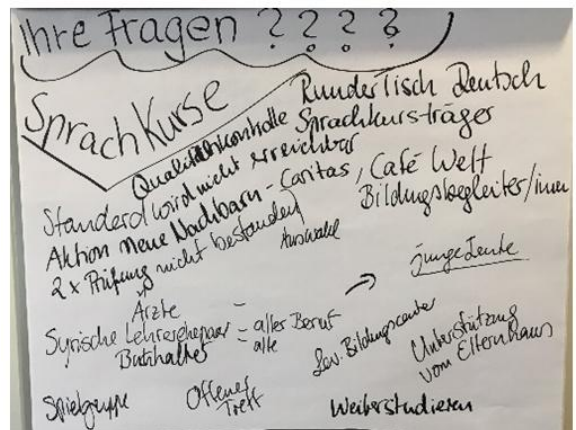 Ihre Fragen ? ? ? ?
Sprachkurse
Runder Tisch Deutsch
Qualitätskontrolle Sprachkursträger
Standard wird nicht erreichbar
Aktion Neue Nachbarn - Caritas, Café Welt
Bildungsbegleiter/innen
2x Prüfung nicht bestanden
Auswahl
junge Leute
Ärzte -
Syrische Lehrerehepaar = alter Beruf
Buchhalter alte
Ev. Bildungscenter
Unterstützung
vom Elternhaus
Spielgruppe
Offener
Treff
Weiterstudieren